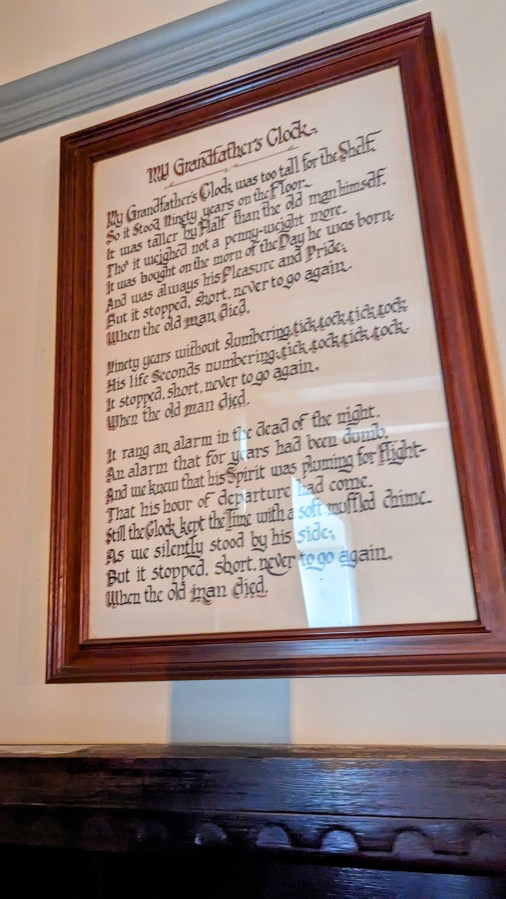 My Grandfather's Clock.
My Grandfather's Clock was too tall for the Shelf.
So it Stood Ninety years on the Floor.
It was taller by Half than the old man himself.
Tho' it weighed not a penny-weight more.
It was bought on the morn of the Day he was born.
And was always his Pleasure and Pride;
But it stopped, short, never to go again.
When the old man died.
Ninety years without slumbering, tick, tock, tick, tock
His life Seconds numbering, tick, tock, tick, tock.
It stopped, short, never to go again.
When the old man died.
It rang an alarm in the dead of the night.
An alarm that for years had been dumb.
And we knew that his Spirit was pluming for flight-
That his hour of departure had come.
Still the Clock kept the Time with a soft muffled chime.
As we silently stood by his side;
But it stopped, short, never to go again.
When the old man died.